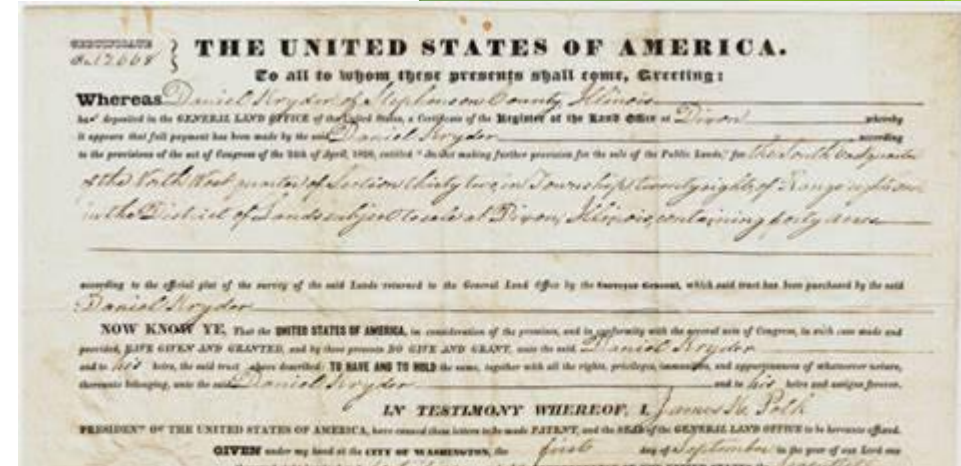 CERTIFICATE
No. 12668
THE UNITED STATES OF AMERICA.
To all to whom these presents shall come, Greeting:
Whereas Daniel Kryder of Stephenson County, Illinois
has deposited in the GENERAL LAND OFFICE of the United States, a Certificate of the Register of the Land Office at Dixon whereby
it appears that full payment has been made by the said Daniel Kryder according
to the provisions of the act of Congress of the 24th of April, 1820, entitled "An Act making further provision for the sale of the Public Lands," for the South East quarter
of the North West quarter of Section thirty two, in Township twenty eight, of Range
in the District of Lands subject to sale at Dixon, Illinois, containing forty acres
according to the official plat of the survey of the said Lands returned to the General Land Office by the Surveyor General, which said tract has been purchased by the said
Daniel Kryder
NOW KNOW YE, That the UNITED STATES OF AMERICA, in consideration of the premises, and in conformity with the several acts of Congress, in such case made and
provided, HAVE GIVEN AND GRANTED, and by these presents DO GIVE AND GRANT, unto the said Daniel Kryder
and to his heirs, the said tract above described: TO HAVE AND TO HOLD the same, together with all the rights, privileges, immunities, and appurtenances of whatsoever nature,
thereunto belonging, unto the said Daniel Kryder and to his heirs and assigns forever.
IN TESTIMONY WHEREOF, I, James K. Polk
PRESIDENT OF THE UNITED STATES OF AMERICA, have caused these letters to be made PATENT, and the SEAL of the GENERAL LAND OFFICE to be hereunto affixed.
GIVEN under my hand at the CITY OF WASHINGTON, the first day of September in the year of our Lord one